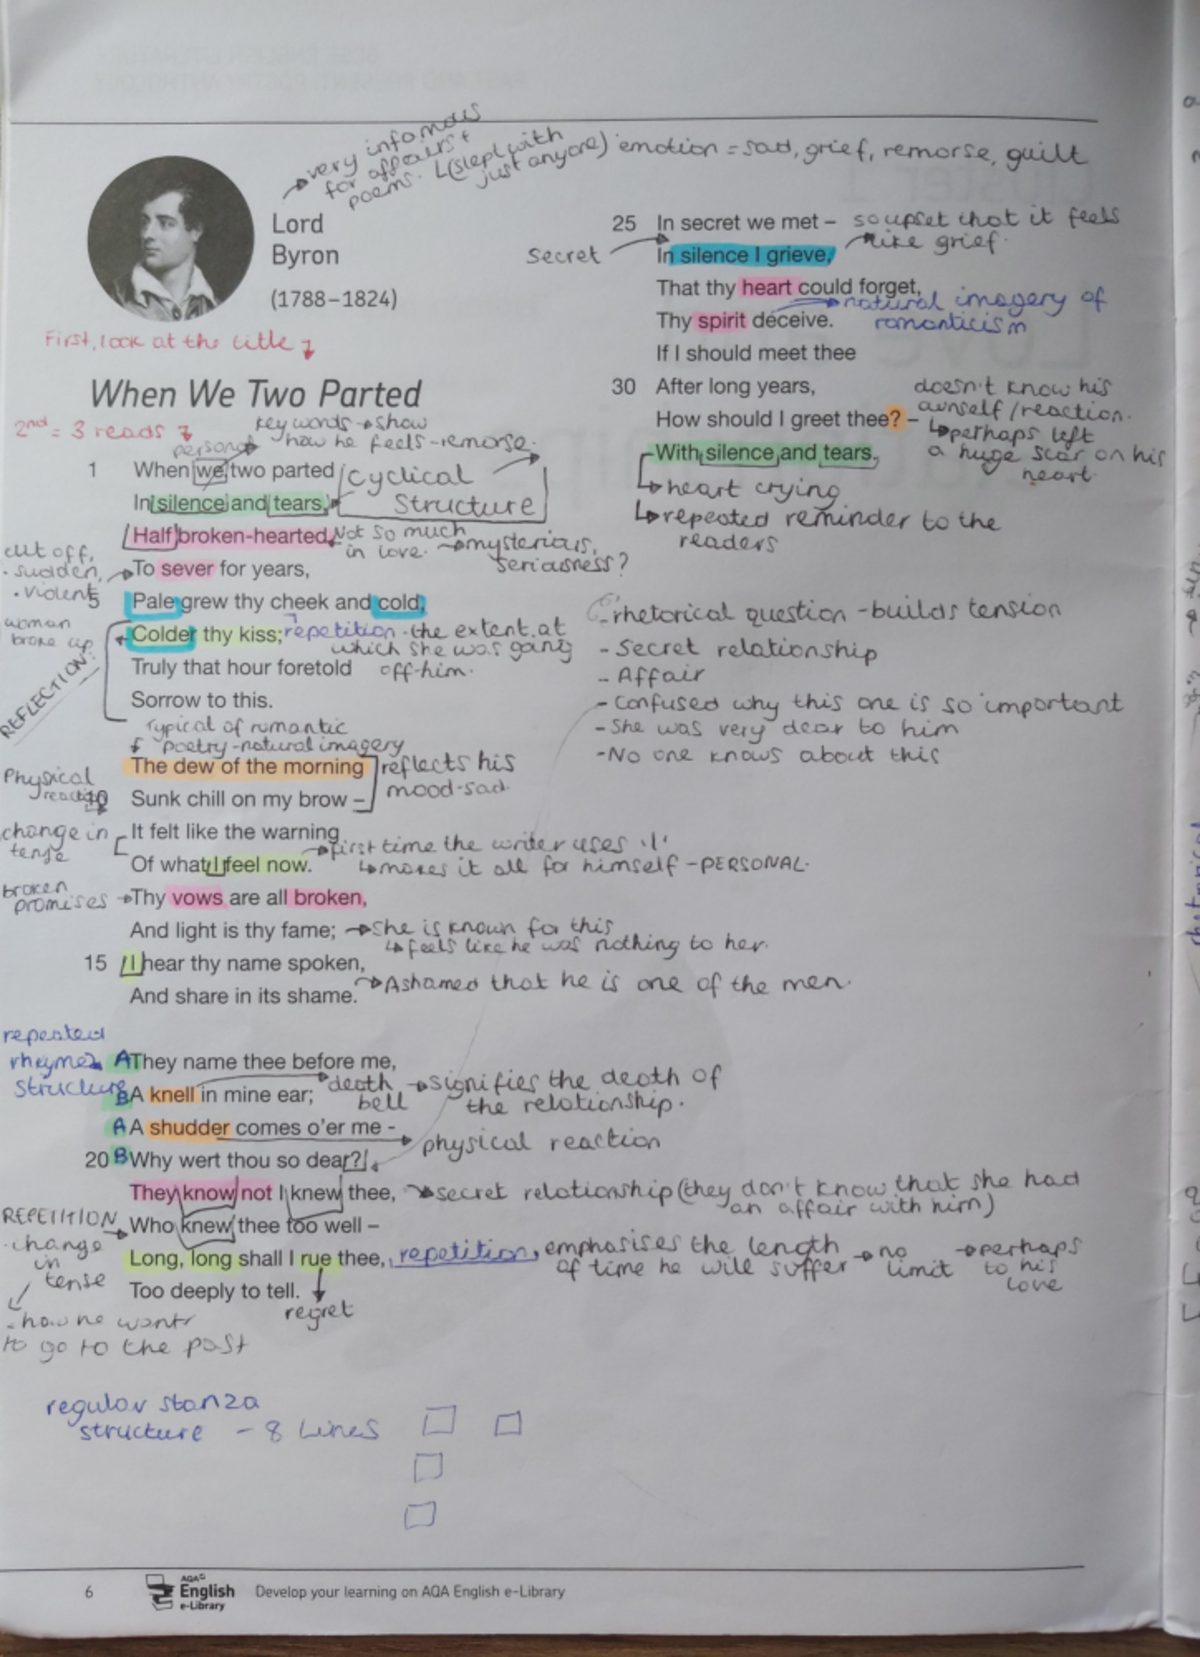 very infamous
for affairs +
poems. (slept with
just anyone)
emotion = sad, grief, remorse, guilt
Lord
Byron
(1788–1824)
First, look at the title
When We Two Parted
2nd = 3 reads
key words → show
how he feels - remorse.
personal
1 When we two parted
cyclical
structure
In silence and tears,
Half broken-hearted
Not so much
in love. → mysterious,
seriousness?
cut off,
· sudden,
· violent
To sever for years,
5 Pale grew thy cheek and cold,
woman
broke up
Colder thy kiss;
repetition · the extent at
which she was going
off him.
Truly that hour foretold
Sorrow to this.
REFLECTION?
Typical of romantic
poetry - natural imagery
The dew of the morning
reflects his
mood - sad.
Physical
reaction
10 Sunk chill on my brow –
change in
tense
It felt like the warning
Of what I feel now.
first time the writer uses 'I'
↳ makes it all for himself - PERSONAL.
broken
promises
Thy vows are all broken,
And light is thy fame;
→ She is known for this
↳ feels like he was nothing to her.
15 I hear thy name spoken,
And share in its shame.
→ Ashamed that he is one of the men.
repeated
rhyme
structure
A They name thee before me,
B A knell in mine ear;
death
bell
→ signifies the death of
the relationship.
A A shudder comes o'er me -
physical reaction
20 B Why wert thou so dear?
They know not I knew thee,
→ secret relationship (they don't know that she had
an affair with him)
REPETITION
· change
in
tense
Who knew thee too well –
Long, long shall I rue thee,
repetition, emphasises the length
of time he will suffer → no
limit
→ perhaps
to his
love
Too deeply to tell.
regret
· how he wants
to go to the past
regular stanza
structure - 8 Lines
25 In secret we met –
so upset that it feels
like grief.
Secret
In silence I grieve,
That thy heart could forget,
natural imagery of
romanticism
Thy spirit deceive.
If I should meet thee
30 After long years,
How should I greet thee? –
doesn't know his
ownself/reaction.
↳ perhaps left
a huge scar on his
heart
With silence and tears.
↳ heart crying
↳ repeated reminder to the
readers
rhetorical question - builds tension
- Secret relationship
- Affair
- Confused why this one is so important
- She was very dear to him
- No one knows about this
6
AQA
English
e-Library
Develop your learning on AQA English e-Library